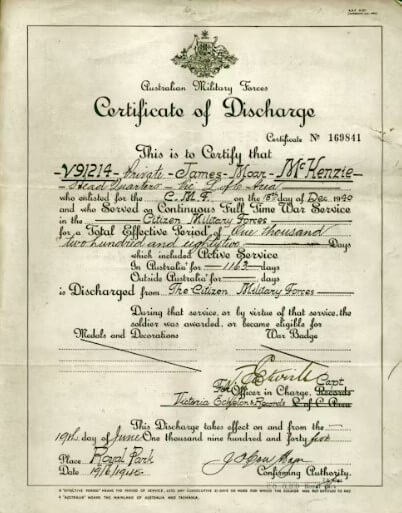 Australian Military Forces
Certificate of Discharge
Certificate No 169841
This is to Certify that
V91214 - Private - James - Moar - McKenzie -
- Head Quarters - Vic L of C Area
who enlisted for the C.M.F. on the day of Dec 1940
and who Served on Continuous Full Time War Service
in the Citizen Military Forces
for a Total Effective Period of One thousand
two hundred and eighty two Days
which included Active Service
In Australia for 1163 days
Outside Australia for days
is Discharged from The Citizen Military Forces
During that service, or by virtue of that service, the
soldier was awarded, or became eligible for
Medals and Decorations War Badge
Capt
Officer in Charge, Records
Victoria Echelon & Records L of C Area
This Discharge takes effect on and from the
19th day of June One thousand nine hundred and forty five
Place Royal Park
Date 19/6/1945 Confirming Authority.
"EFFECTIVE PERIOD" MEANS THE PERIOD OF SERVICE, LESS ANY CONSECUTIVE 21 DAYS OR MORE FOR WHICH THE SOLDIER WAS NOT ENTITLED TO PAY
"AUSTRALIA" MEANS THE MAINLAND OF AUSTRALIA AND TASMANIA.